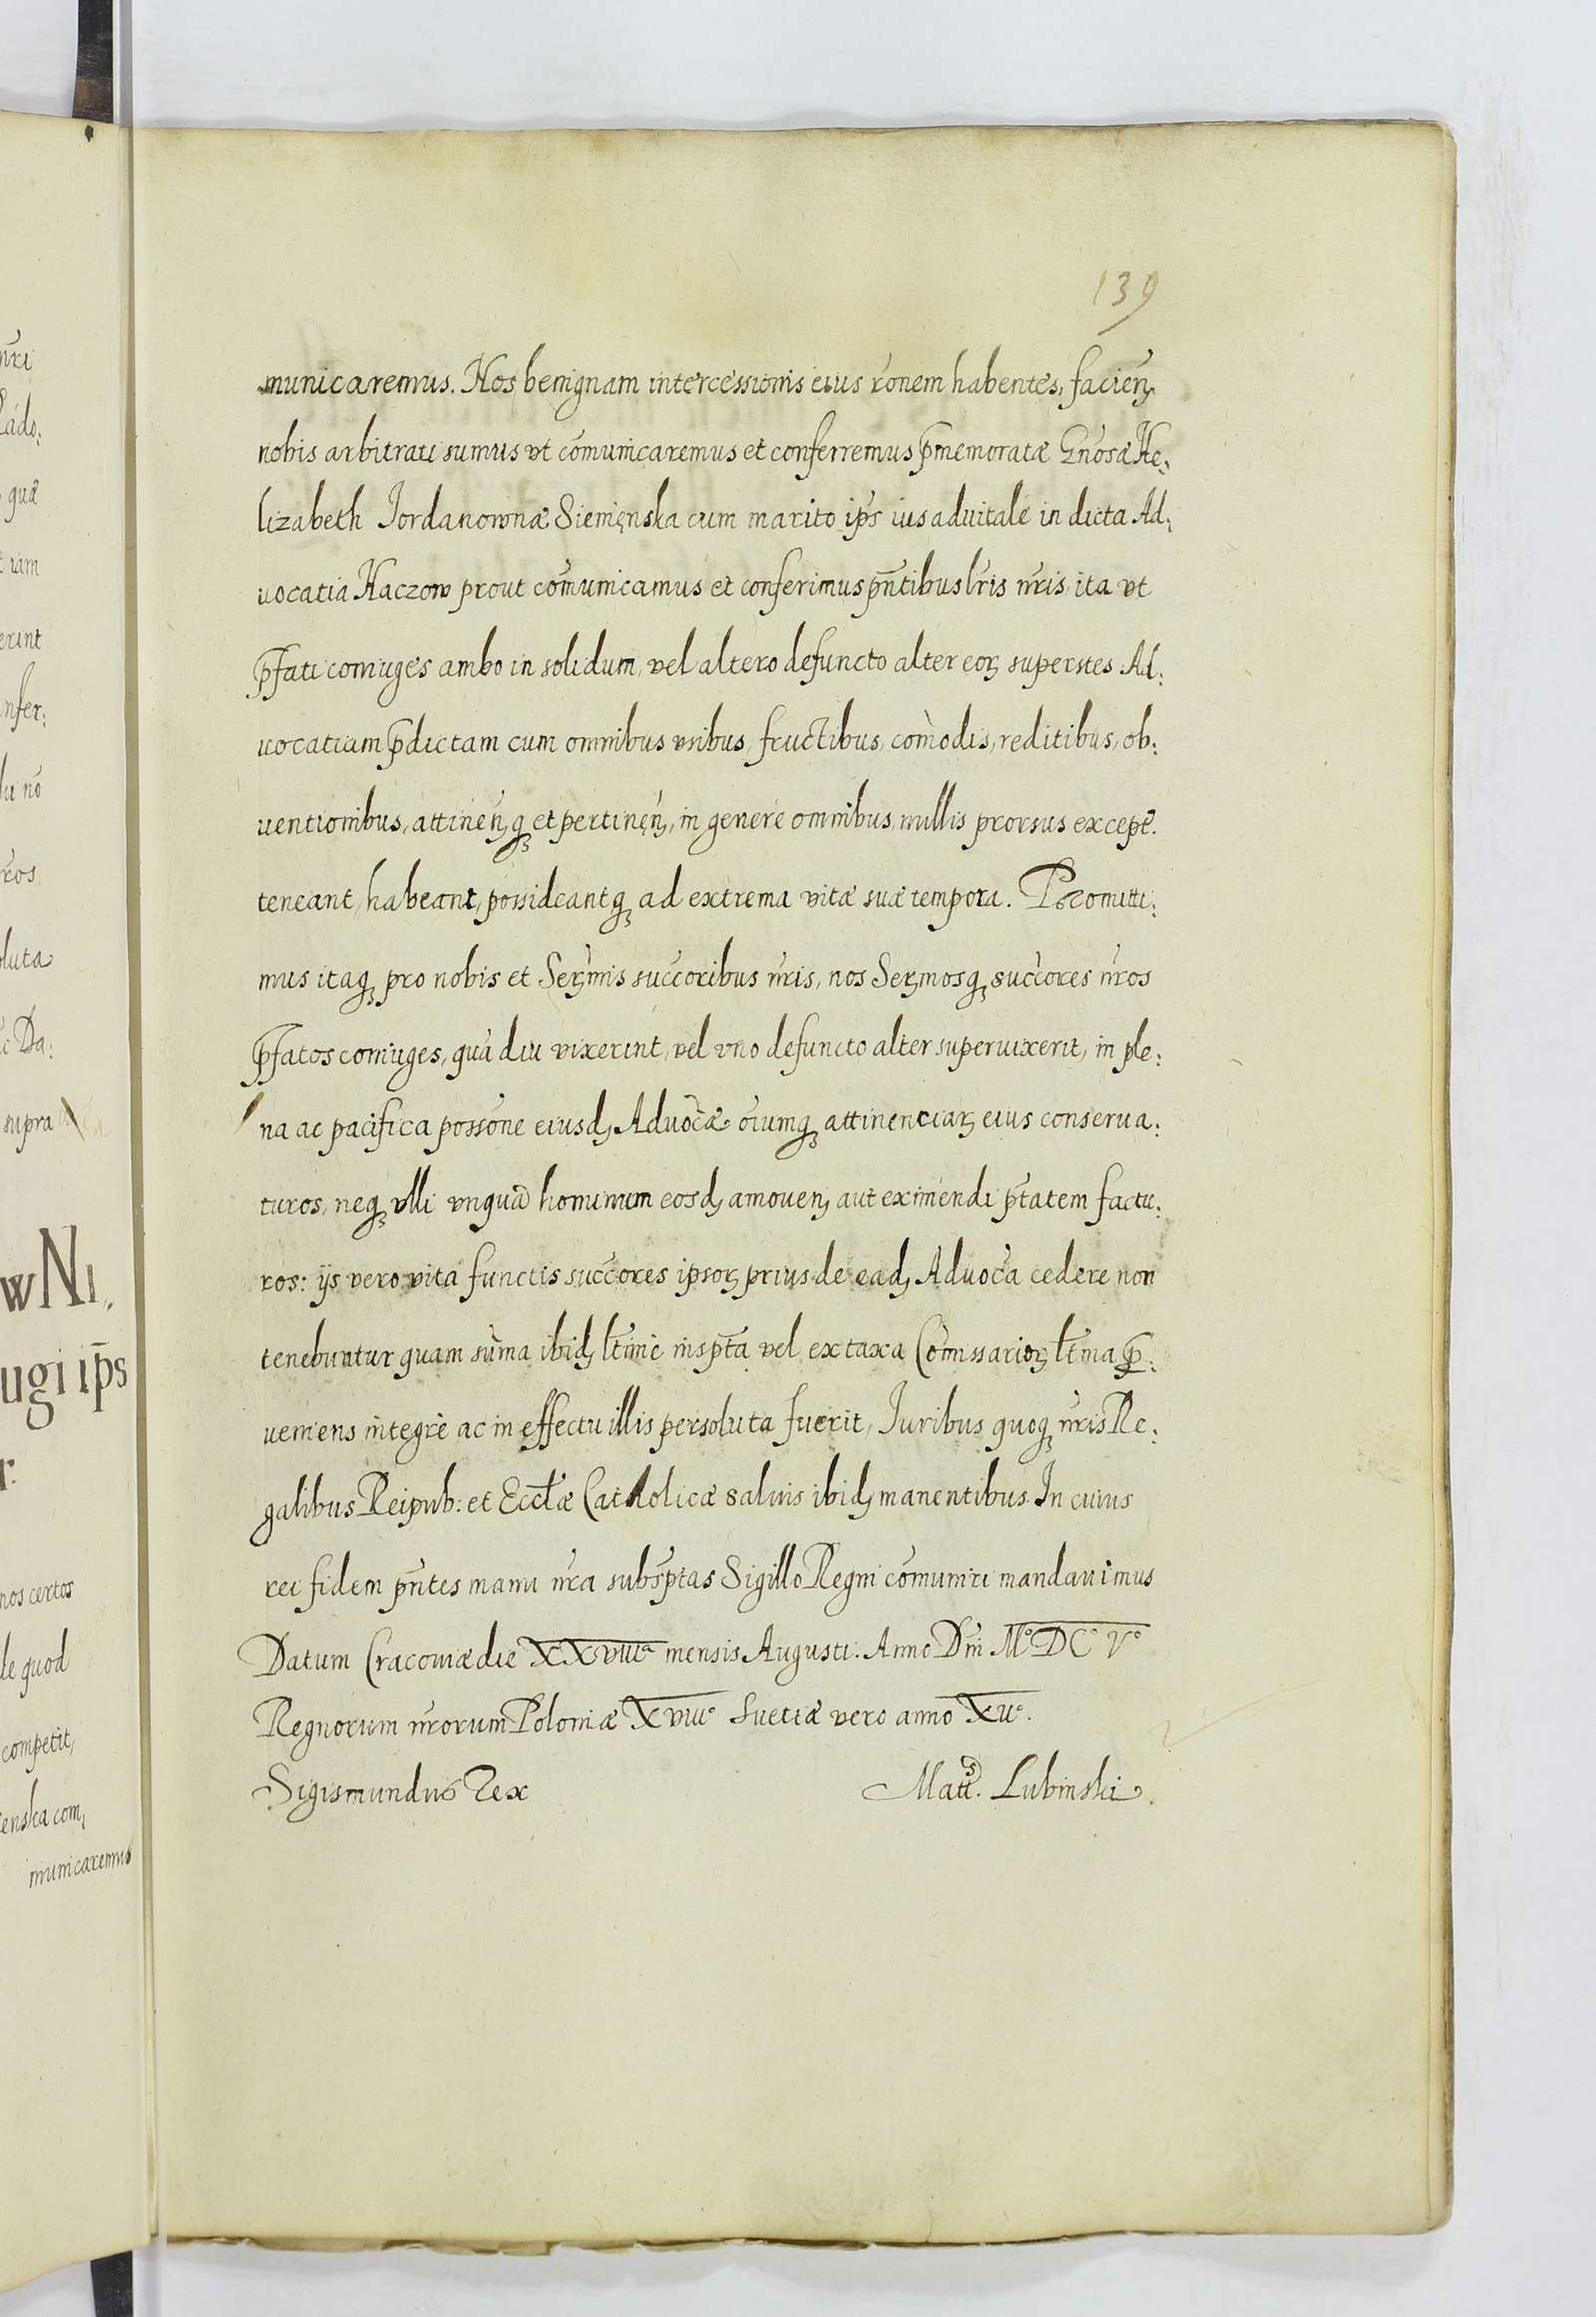 139
municaremus. Nos benignam intercessionis eius rõnem habentes, facien̄ꝫ
nobis arbitrati sumus vt com̃unicaremus et conferremus p̄memoratæ Gñosæ He,
lizabeth Jordanownæ Siemięnska cum marito ip̃s ius aduitale in dicta Ad,
uocatia Haczow prout com̃unicamus et conferimus pñtibus lr̃is nr̃is, ita vt
p̄fati coniuges ambo in solidum, vel altero defuncto alter eoꝝ superstes Ad:
uocatiam p̄dictam cum omnibus vsibus, fructibus, com̀odis, reditibus, ob:
uentionibus, attinen̄ꝫqꝫ et pertinen̄ꝫ, in genere omnibus, nullis prorsus excep̃t.
teneant, habeant, possideantqꝫ ad extrema vitæ suæ tempora. Promitti:
mus itaqꝫ pro nobis et Serꝫmis succ̃oribus nr̃is, nos Serꝫmosqꝫ succ̃ores nr̃os
p̄fatos coniuges, quã diu vixerint, vel vno defuncto alter superuixerit, in ple:
na ac pacifica possõne eiusdꝫ Aduoc̃æ oĩumqꝫ attinentiaꝝ eius conserua:
turos, neqꝫ vlli vnquã hominum eosdꝫ amouenꝫ aut eximendi p̃tatem factu:
ros: ijs vero vita functis succ̃ores ipsoꝝ prius de eadꝫ Aduoc̃a cedere non
tenebuntur quam sum̀a ibidꝫ lt̃imè insp̃ta vel ex taxa Com̃issarioꝝ lt̃ima ꝓ:
ueniens integrè ac in effectu illis persoluta fuerit, Juribus quoqꝫ nr̃is Re:
galibus Reipub: et Eccl̃æ Catholicæ saluis ibidꝫ manentibus. In cuius
rei fidem pñtes manu nr̃a subsp̃tas Sigillo Regni com̃uniri mandauimus
Datum Cracouiæ die XXVIIIa mensis Augusti. Anno Dnĩ Mº DCº Vº
Regnorum nr̃orum Poloniæ XVIIIº Suetiæ vero anno XIIº.
Sigismundus Rex
Matts. Lubinski.